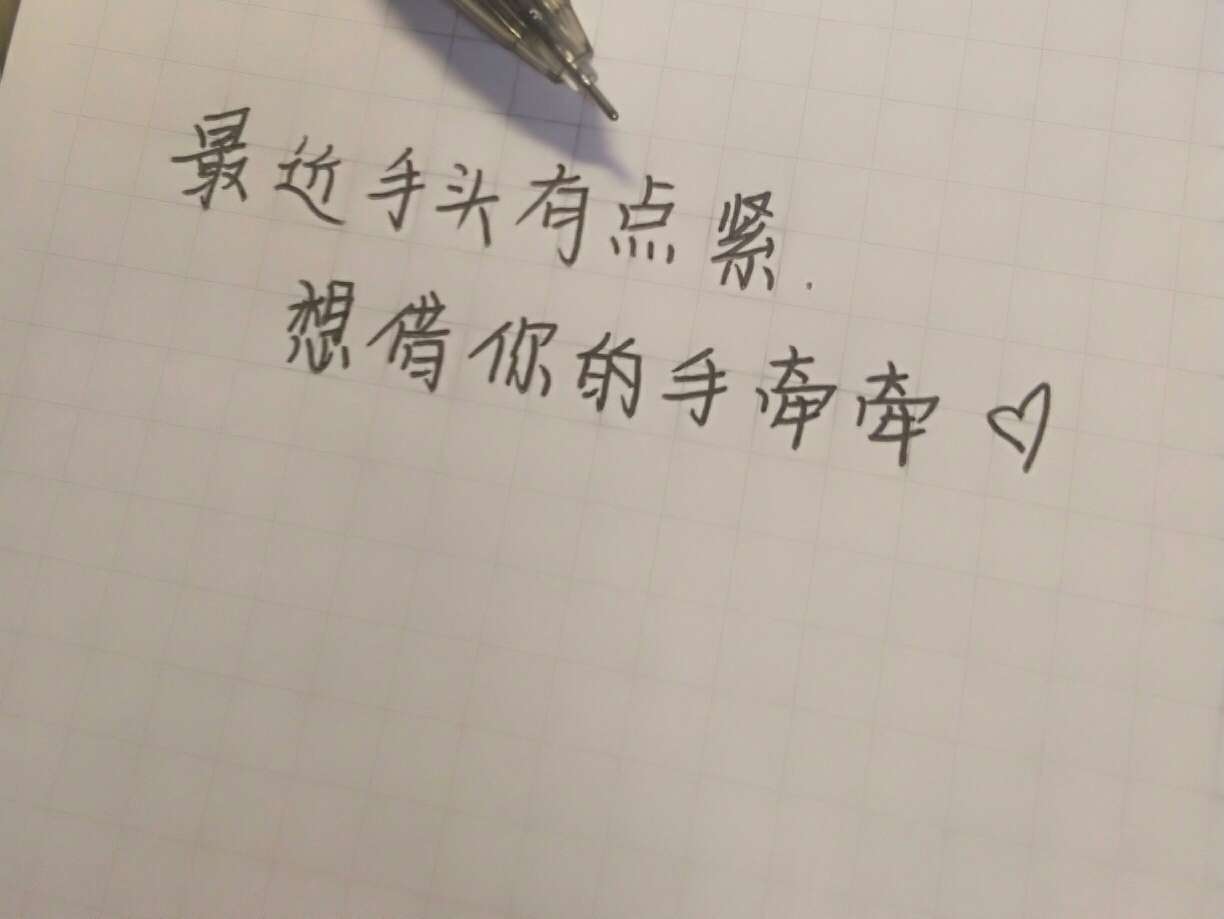 最近手头有点紧.
想借你的手牵牵♡